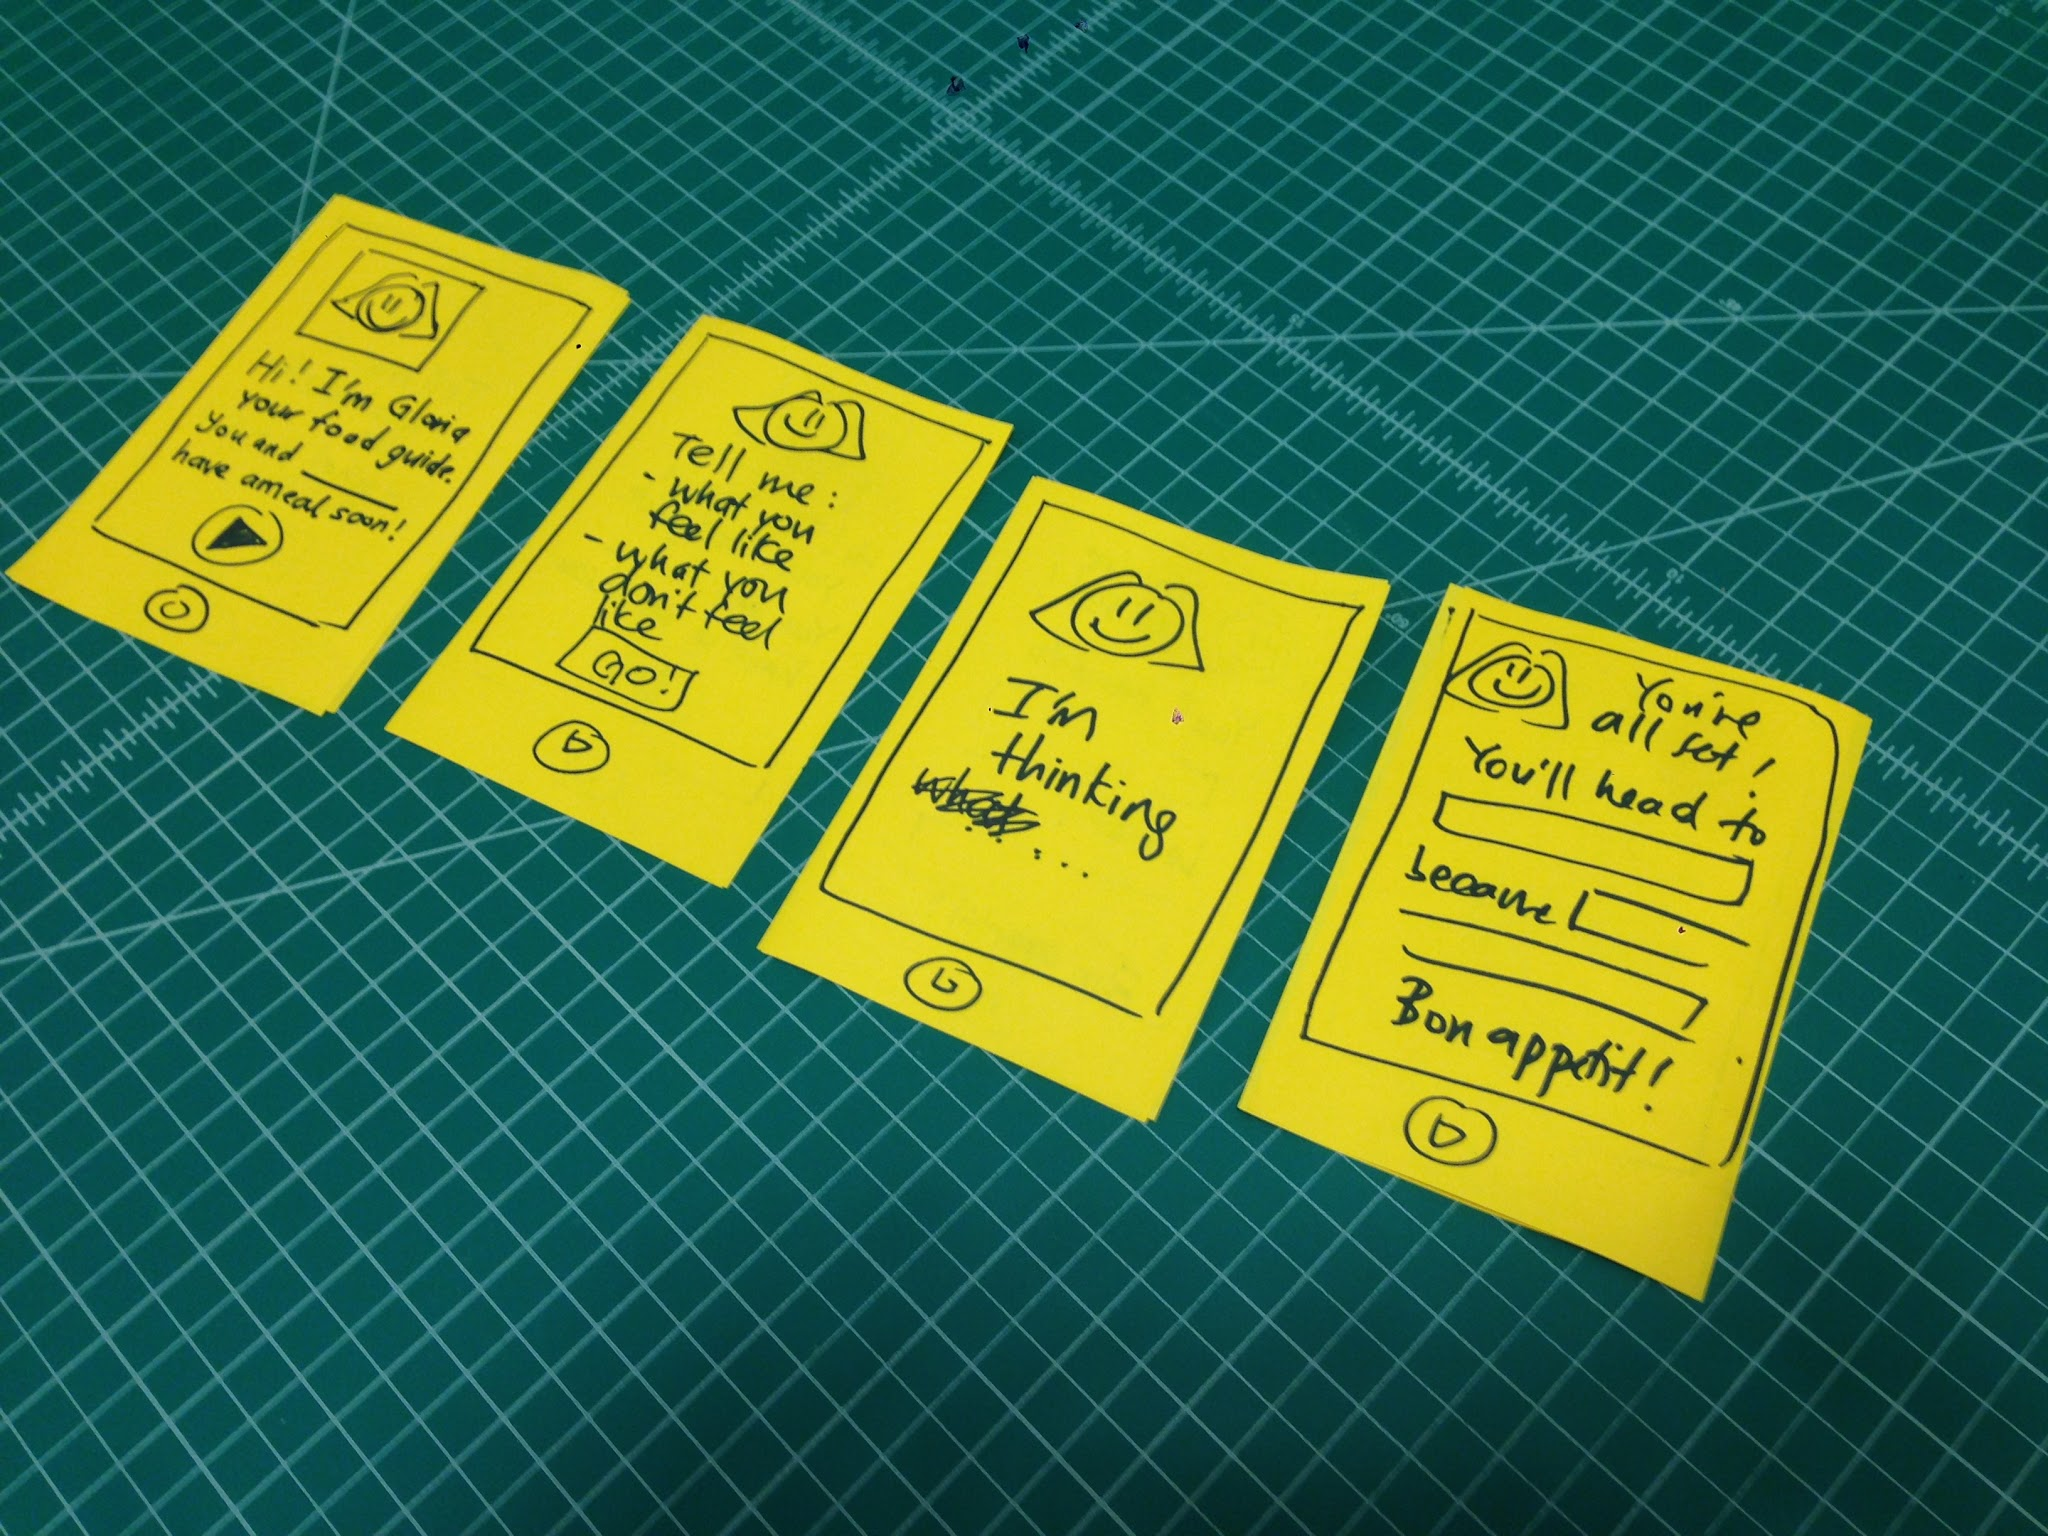 Hi! I'm Gloria
your food guide.
You and
have a meal soon!
Tell me:
- what you
feel like
- what you
don't feel
like
GO!
I'm
thinking
...
You're
all set!
You'll head to
because
Bon appetit!